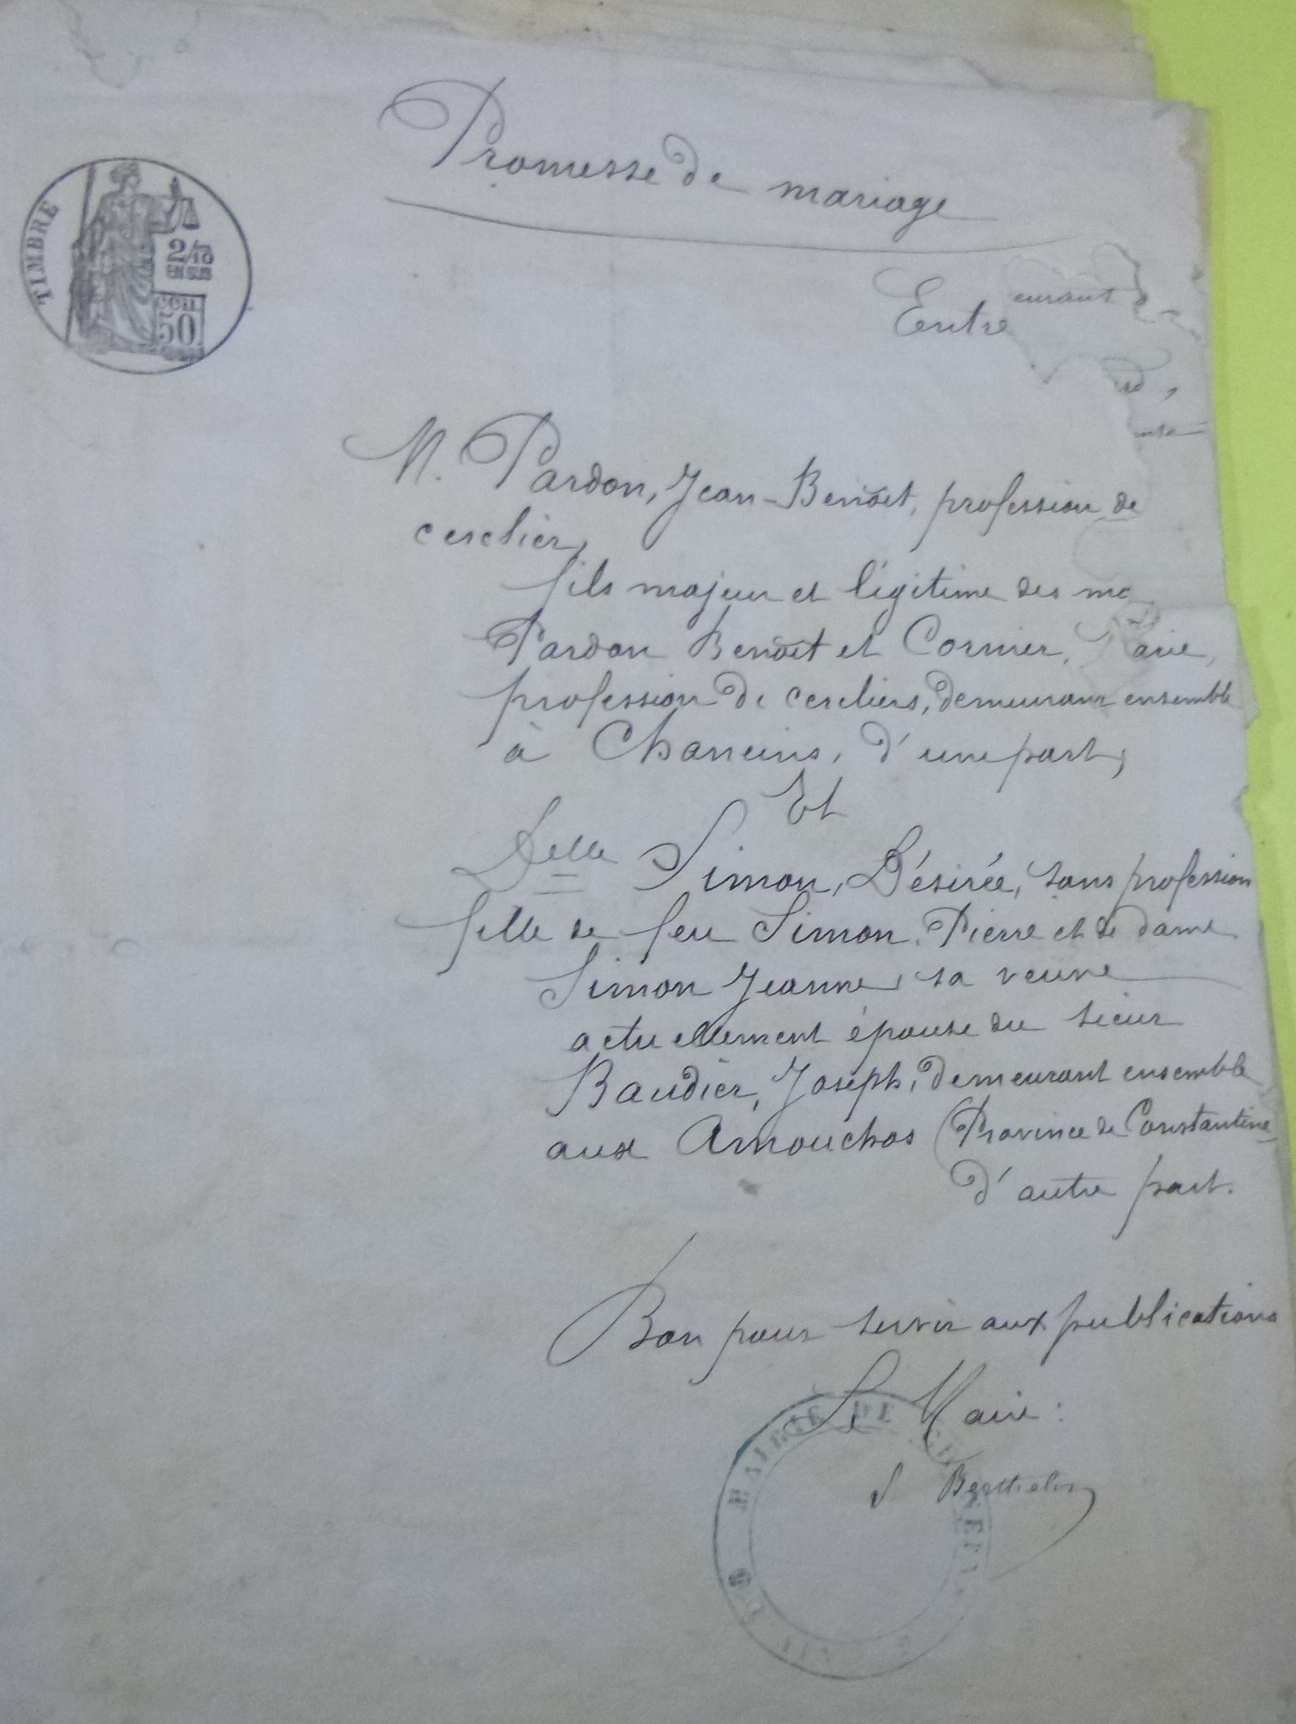 Promesse de mariage
TIMBRE
2/10
EN SUS
50
Entre
eurant
M. Pardon, Jean-Benoît, profession de
cerclier,
fils majeur et légitime des
Pardon Benoît et Cornier, Marie,
profession de cercliers, demeurant ensemble
à Chaneins, d'une part,
Et
Delle Simon, Désirée, sans profession
fille de feu Simon, Pierre et de dame
Simon Jeanne, sa veuve
actuellement épouse du sieur
Baudier, Joseph, demeurant ensemble
aux Amouchas (Province de Constantine
d'autre part.
Bon pour servir aux publications
Le Maire :
MAIRIE DE